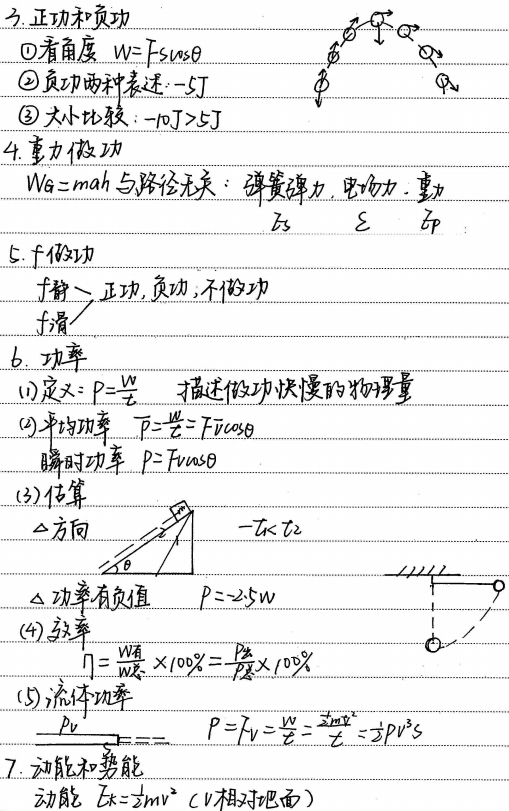 3. 正功和负功
①看角度 W=Fscosθ
②负功两种表述:-5J
③大小比较:-10J>5J
4. 重力做功
WG=mgh 与路径无关: 弹簧弹力. 电场力. 重力
Es ε Ep
5. f做功
f静 正功, 负功, 不做功
f滑
6. 功率
(1)定义: P=W/t 描述做功快慢的物理量
(2)平均功率 P̄=W/t=Fv̄cosθ
瞬时功率 P=Fvcosθ
(3)估算
△方向 -t₁<t₂
m
2 1
θ
△功率有负值 P=-2.5W
(4)效率
η=W有/W总×100%=P出/P总×100%
(5)流体功率
ρv P=Fv=W/t=½mv²/t=½ρv³s
s
7. 动能和势能
动能 Ek=½mv² (v相对地面)